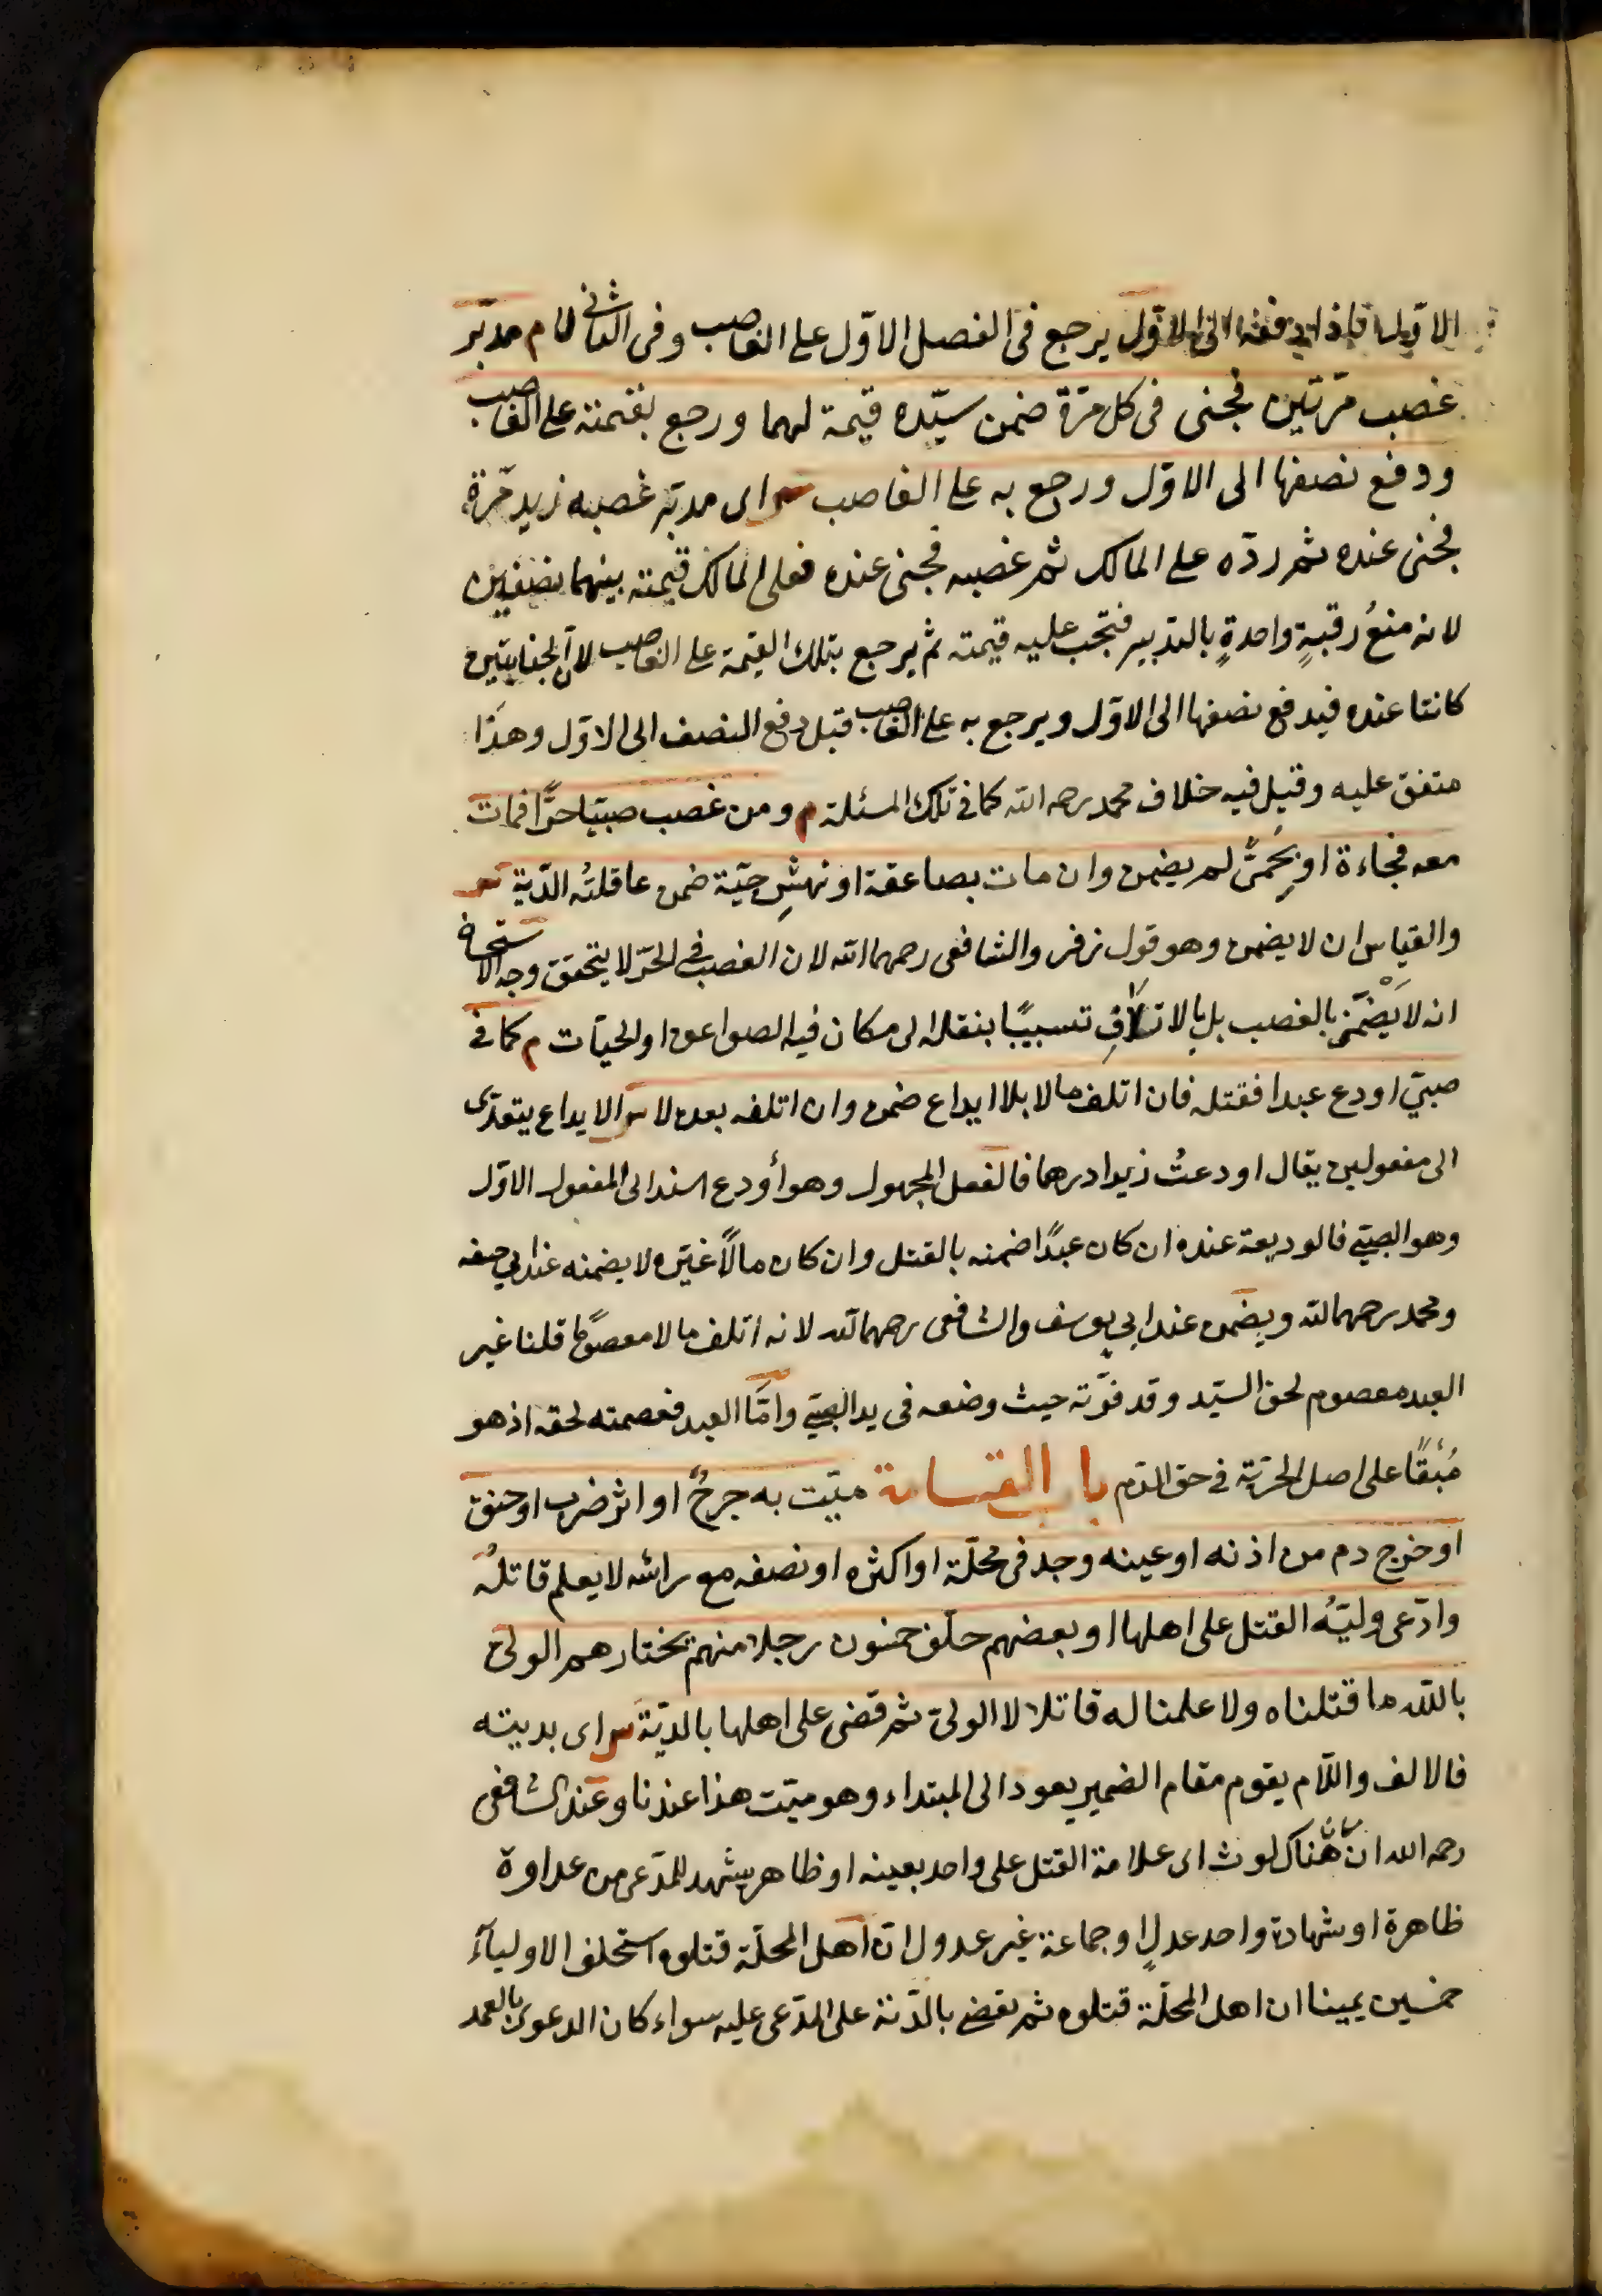 الاول فاذا دفعه الى الاول يرجع فى الفصل الاوّل على الغاصب وفى الثانى لا م مدبّر
غصب مرّتين فجنى فى كل مرّة ضمن سيّده قيمة لهما ورجع بقيمته على الغاصب
ودفع نصفها الى الاوّل ورجع به على الغاصب ش اى مدبّر غصبه زيد مرّة
فجنى عنده ثم ردّه على المالك ثم غصبه فجنى عنده فعلى المالك قيمته بينهما نصفين
لانه منعُ رقبةٍ واحدةٍ بالتدبير فتجب عليه قيمته ثم يرجع بتلك القيمة على الغاصب لانّ الجنايتين
كانتا عنده فيدفع نصفها الى الاوّل ويرجع به على الغاصب قبل دفع النصف الى الاوّل وهذا
متفق عليه وقيل فيه خلاف محمد رحمه الله كما فى تلك المسئلة م ومن غصب صبيّا حرّا فمات
معه فجاءة او بحُمّى لم يضمن وان مات بصاعقة او نهشِ حيّة ضمن عاقلتُه الدّية ش
والقياس ان لا يضمن وهو قول زفر والشافعى رحمهما الله لان الغصب فى الحرّ لا يتحقق وجه الاستحسان
انه لا يَضْمَن بالغصب بل بالاتلافِ تسبيبًا بنقله الى مكان فيه الصواعق او الحيّات م كما فى
صبيّ اودع عبدا فقتله فان اتلف مالا بلا ايداع ضمن وان اتلفه بعده لا ش الايداع يتعدّى
الى مفعولين يقال اودعتُ زيدا درهما فالفعل المجهول وهو أودع اسند الى المفعول الاوّل
وهو الصبىّ فالوديعة عنده ان كان عبدًا ضمنه بالقتل وان كان مالًا غيره لا يضمنه عند ابي حنيفه
ومحمد رحمهما الله ويضمن عند ابى يوسف والشافعى رحمهما الله لانه اتلف مالا معصومًا قلنا غير
العبد معصوم لحق السيّد وقد فوّته حيث وضعه فى يد الصبىّ وامّا العبد فعصمته لحقه اذ هو
مُبْقًا على اصل الحرّية فى حق الدّم باب القسامة ميّت به جرحٌ او اثر ضرب او خنق
او خرج دم من اذنه او عينه وجد فى محلّة او اكثره او نصفه مع راسه لا يعلم قاتلُه
وادّعى وليّه القتل على اهلها او بعضهم حلف خمسون رجلا منهم يختارهم الولى
بالله ما قتلناه ولا علمنا له قاتلا لا الولىّ ثم قضى على اهلها بالديّة ش اى بديته
فالالف واللّام يقوم مقام الضمير يعود الى المبتداء وهو ميّت هذا عندنا وعند الشافعى
رحمه الله ان كان هناك لوث اى علامة القتل على واحد بعينه او ظاهر يشهد للمدّعى من عداوة
ظاهرة او شهادة واحد عدلٍ او جماعة غير عدول انّ اهل المحلّة قتلوه استحلف الاولياء
خمسين يمينا ان اهل المحلّة قتلوه ثم يقضى بالدّية على المدّعى عليه سواء كان الدعوى بالعمد